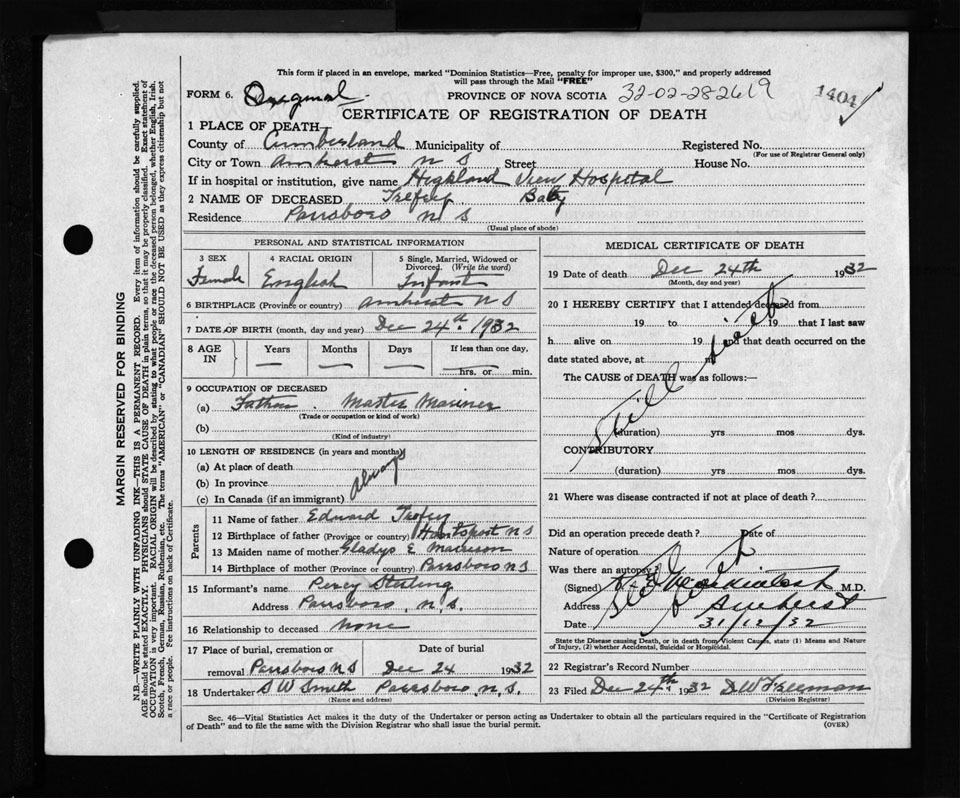 This form if placed in an envelope, marked "Dominion Statistics—Free, penalty for improper use, $300," and properly addressed
will pass through the Mail "FREE"
FORM 6. Original PROVINCE OF NOVA SCOTIA 32-02-282619 1404
CERTIFICATE OF REGISTRATION OF DEATH
1 PLACE OF DEATH—
County of Cumberland Municipality of Registered No.
(For use of Registrar General only)
City or Town Amherst N S Street House No.
If in hospital or institution, give name Highland View Hospital
2 NAME OF DECEASED Trefry Baby
Residence Parrsboro N S
(Usual place of abode)
PERSONAL AND STATISTICAL INFORMATION
3 SEX 4 RACIAL ORIGIN 5 Single, Married, Widowed or
Divorced. (Write the word)
Female English Infant
6 BIRTHPLACE (Province or country) Amherst N S
7 DATE OF BIRTH (month, day and year) Dec 24th 1932
8 AGE IN Years Months Days If less than one day,
— — — hrs. or min.
9 OCCUPATION OF DECEASED
(a) Father. Master Mariner
(Trade or occupation or kind of work)
(b)
(Kind of industry)
10 LENGTH OF RESIDENCE (in years and months)
(a) At place of death
(b) In province always
(c) In Canada (if an immigrant)
Parents
11 Name of father Edward Trefry
12 Birthplace of father (Province or country) Hantsport N S
13 Maiden name of mother Gladys E
14 Birthplace of mother (Province or country) Parrsboro N S
15 Informant's name Percy Sterling
Address Parrsboro, N.S.
16 Relationship to deceased None
17 Place of burial, cremation or Date of burial
removal Parrsboro N S Dec 24 1932
18 Undertaker S W Smith Parrsboro, N.S.
(Name and address)
MEDICAL CERTIFICATE OF DEATH
19 Date of death Dec 24th 1932
(Month, day and year)
20 I HEREBY CERTIFY that I attended deceased from
19 to 19 that I last saw
h alive on 19 and that death occurred on the
date stated above, at m
The CAUSE of DEATH was as follows:—
Still birth
(duration) yrs mos dys.
CONTRIBUTORY
(duration) yrs mos dys.
21 Where was disease contracted if not at place of death?
Did an operation precede death? Date of
Nature of operation
Was there an autopsy?
(Signed) M.D.
Address Amherst
Date 31/12/32
State the Disease causing Death, or in death from Violent Causes, state (1) Means and Nature
of Injury, (2) whether Accidental, Suicidal or Homicidal.
22 Registrar's Record Number
23 Filed Dec 24th 1932 D W Freeman
(Division Registrar)
Sec. 46—Vital Statistics Act makes it the duty of the Undertaker or person acting as Undertaker to obtain all the particulars required in the "Certificate of Registration
of Death" and to file the same with the Division Registrar who shall issue the burial permit. (OVER)
MARGIN RESERVED FOR BINDING
N.B.—WRITE PLAINLY WITH UNFADING INK—THIS IS A PERMANENT RECORD. Every item of information should be carefully supplied.
AGE should be stated EXACTLY. PHYSICIANS should STATE CAUSE OF DEATH in plain terms, so that it may be properly classified. Exact statement of
OCCUPATION is very important. RACIAL ORIGIN will be described by stating to what people or race the deceased person belonged, whether English, Irish,
Scotch, French, German, Russian, Ruthenian, etc. The terms "AMERICAN" or "CANADIAN" SHOULD NOT BE USED as they express citizenship but not
a race or people. Fee instructions on back of Certificate.